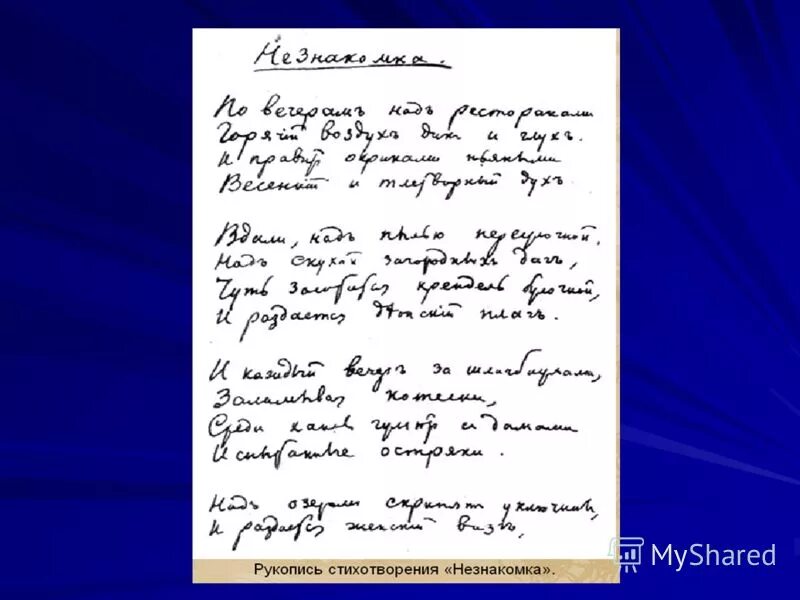 Незнакомка.
По вечерамъ надъ ресторанами
Горячій воздухъ дикъ и глухъ.
И правитъ окриками пьяными
Весенній и тлетворный духъ.
Вдали, надъ пылью переулочной,
Надъ скукой загородныхъ дачъ,
Чуть золотится крендель булочной,
И раздается дѣтскій плачъ.
И каждый вечеръ за шлагбаумами,
Заламывая котелки,
Среди канавъ гуляютъ съ дамами
Испытанные остряки.
Надъ озерами скрипятъ уключины,
И раздается женскій визгъ,
Рукопись стихотворения «Незнакомка».
MyShared